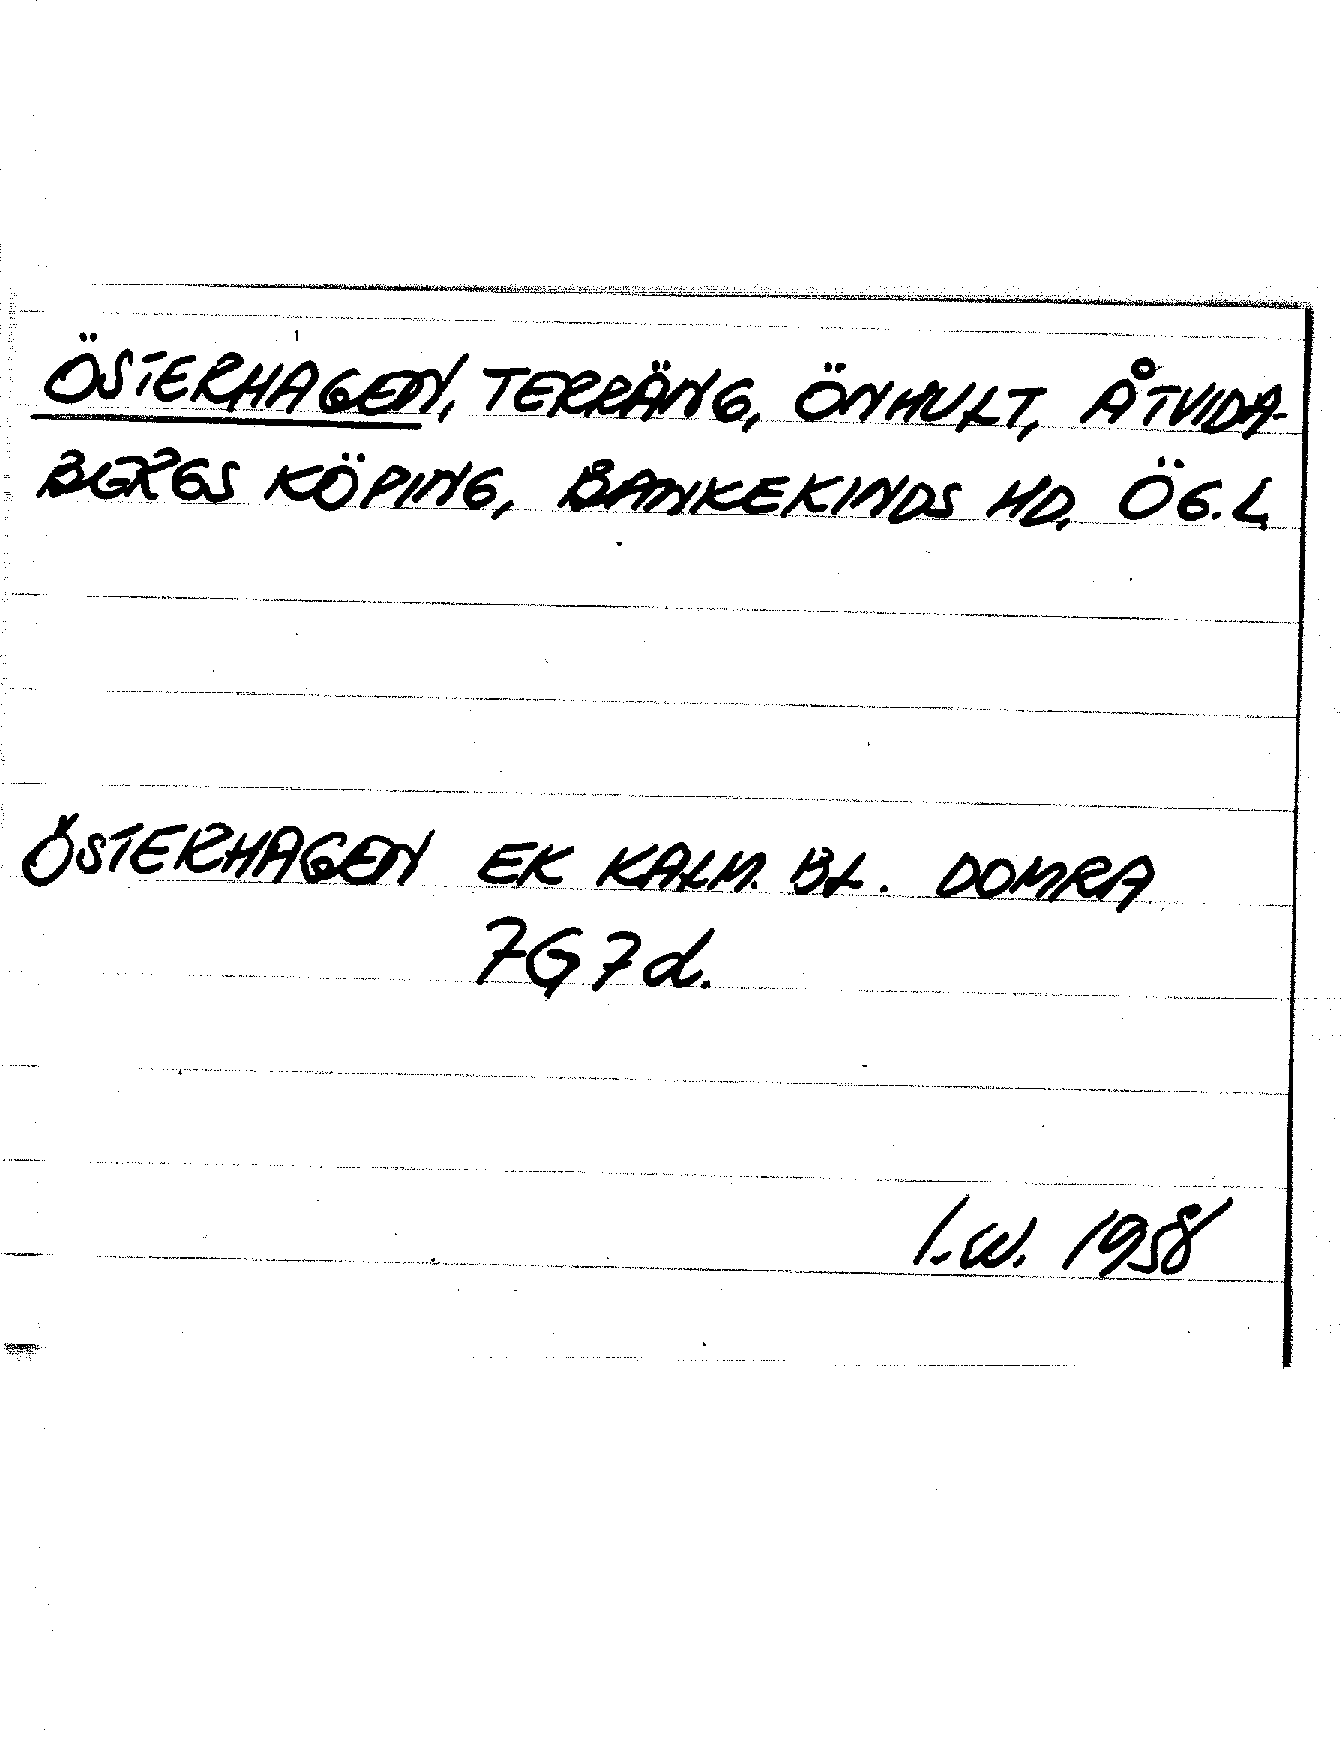 ÖSTERHAGEN, TERRÄNG, ÖNHULT, ÅTVIDA-
BERGS KÖPING, BANKEKINDS HD, ÖG.L
ÖSTERHAGEN EK KALM. BL. DOMRA
7G7d.
I.W. 1958